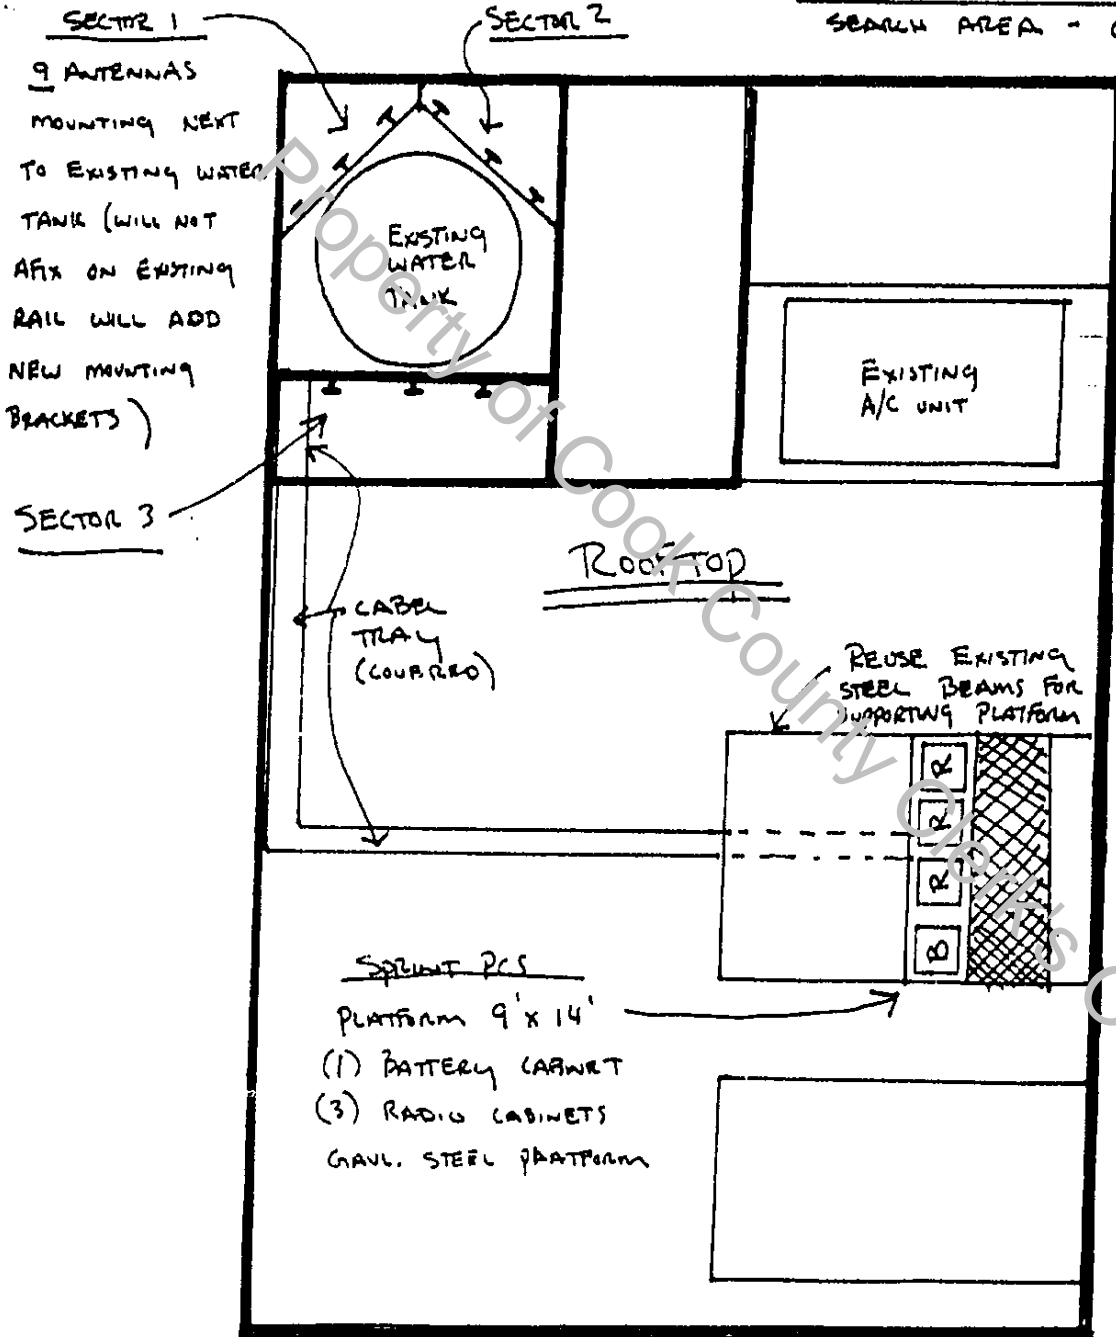 SECTOR 1
SECTOR 2
SEARCH AREA -
9 ANTENNAS
MOUNTING NEXT
TO EXISTING WATER
TANK (WILL NOT
AFIX ON EXISTING
RAIL WILL ADD
NEW MOUNTING
BRACKETS)
EXISTING
WATER
TANK
EXISTING
A/C UNIT
SECTOR 3
ROOFTOP
CABEL
TRAY
(COVERED)
REUSE EXISTING
STEEL BEAMS FOR
SUPPORTING PLATFORM
R
R
R
B
SPRINT PCS
PLATFORM 9'x 14'
(1) BATTERY CABINET
(3) RADIO CABINETS
GAVL. STEEL PLATFORM
Property of Cook County Clerk's